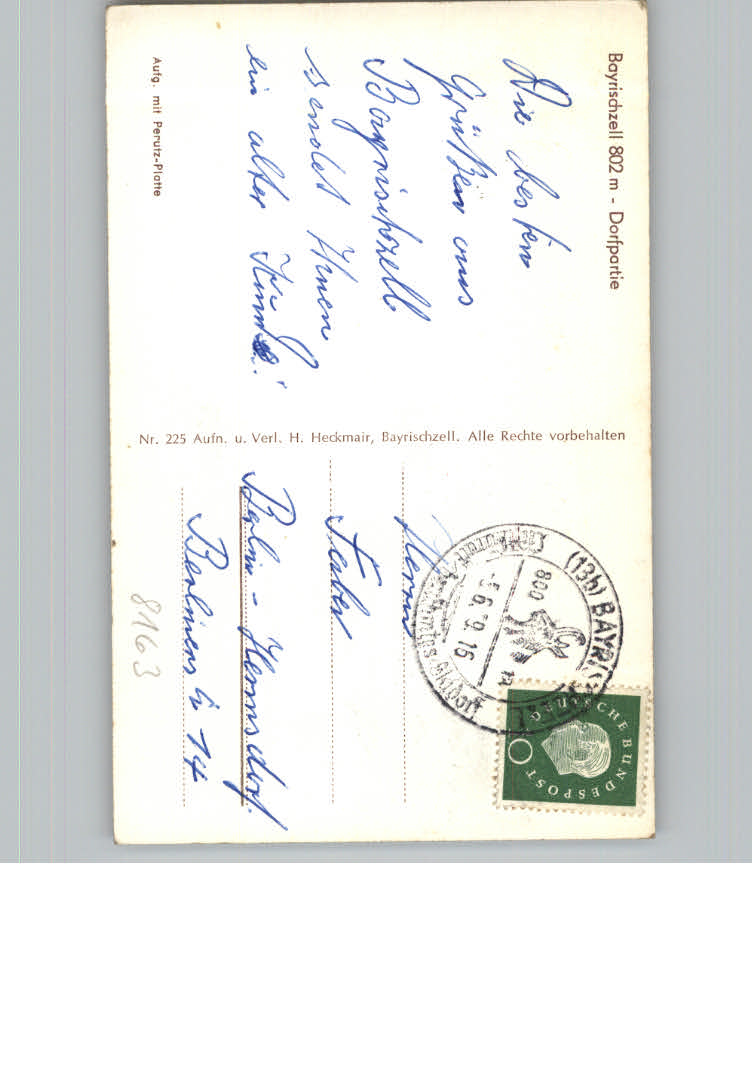 Bayrischzell 802 m - Dorfpartie
Die besten
Grüße aus
Bayrischzell
sendet Ihnen
ein alter Kunde!
Aufg. mit Perutz-Platte
Nr. 225 Aufn. u. Verl. H. Heckmair, Bayrischzell. Alle Rechte vorbehalten
(13b) BAYRISCHZELL
800
-5.6.9.16
DEUTSCHE BUNDESPOST
10
Herrn
Faber
Berlin - Hermsdorf
14
8163